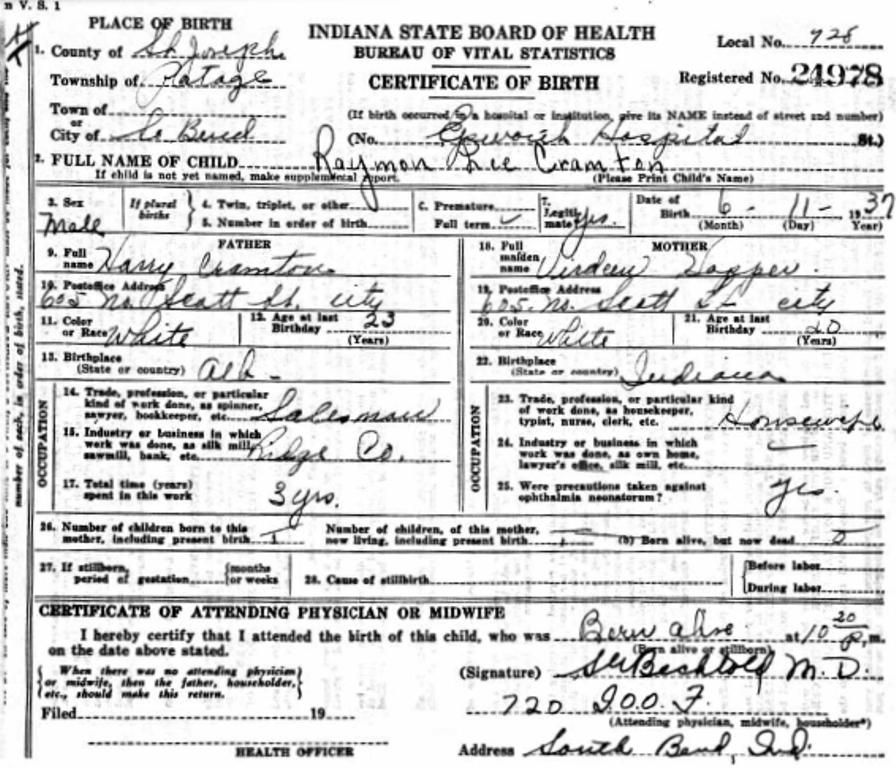 n V. S. 1
PLACE OF BIRTH
INDIANA STATE BOARD OF HEALTH
BUREAU OF VITAL STATISTICS
CERTIFICATE OF BIRTH
Local No. 728
Registered No. 24978
1. County of St. Joseph
Township of Potage
Town of
or
City of So Bend
(If birth occurred in a hospital or institution, give its NAME instead of street and number)
(No. Epworth Hospital St.)
2. FULL NAME OF CHILD Raymon Lee Cramton
If child is not yet named, make supplemental report. (Please Print Child's Name)
3. Sex Male
If plural births
4. Twin, triplet, or other
5. Number in order of birth
6. Premature
Full term ✓
7. Legitimate yes.
Date of Birth 6 - 11 - 1937
(Month) (Day) Year)
FATHER
9. Full name Harry Cramton
10. Postoffice Address
605 no. Scott St. city
11. Color or Race White
12. Age at last Birthday 23
(Years)
13. Birthplace
(State or country)
OCCUPATION
14. Trade, profession, or particular kind of work done, as spinner, sawyer, bookkeeper, etc. Salesman
15. Industry or business in which work was done, as silk mill, sawmill, bank, etc. Co.
17. Total time (years) spent in this work 3 yrs.
MOTHER
18. Full maiden name
19. Postoffice Address
605. no. Scott St city
20. Color or Race White
21. Age at last Birthday 20
(Years)
22. Birthplace
(State or country) Indiana
OCCUPATION
23. Trade, profession, or particular kind of work done, as housekeeper, typist, nurse, clerk, etc. Housewife
24. Industry or business in which work was done, as own home, lawyer's office, silk mill, etc.
25. Were precautions taken against ophthalmia neonatorum? yes.
26. Number of children born to this mother, including present birth 1
Number of children, of this mother, now living, including present birth 1
(b) Born alive, but now dead 0
27. If stillborn, period of gestation {months or weeks
28. Cause of stillbirth
{Before labor
During labor
CERTIFICATE OF ATTENDING PHYSICIAN OR MIDWIFE
I hereby certify that I attended the birth of this child, who was Born alive at 10 20 P. m.
on the date above stated. (Born alive or stillborn)
{When there was no attending physician or midwife, then the father, householder, etc., should make this return.}
(Signature) M. D.
720 I.O.O.F.
(Attending physician, midwife, householder*)
Filed 19
HEALTH OFFICER
Address South Bend, Ind.
number of each, in order of birth, stated.